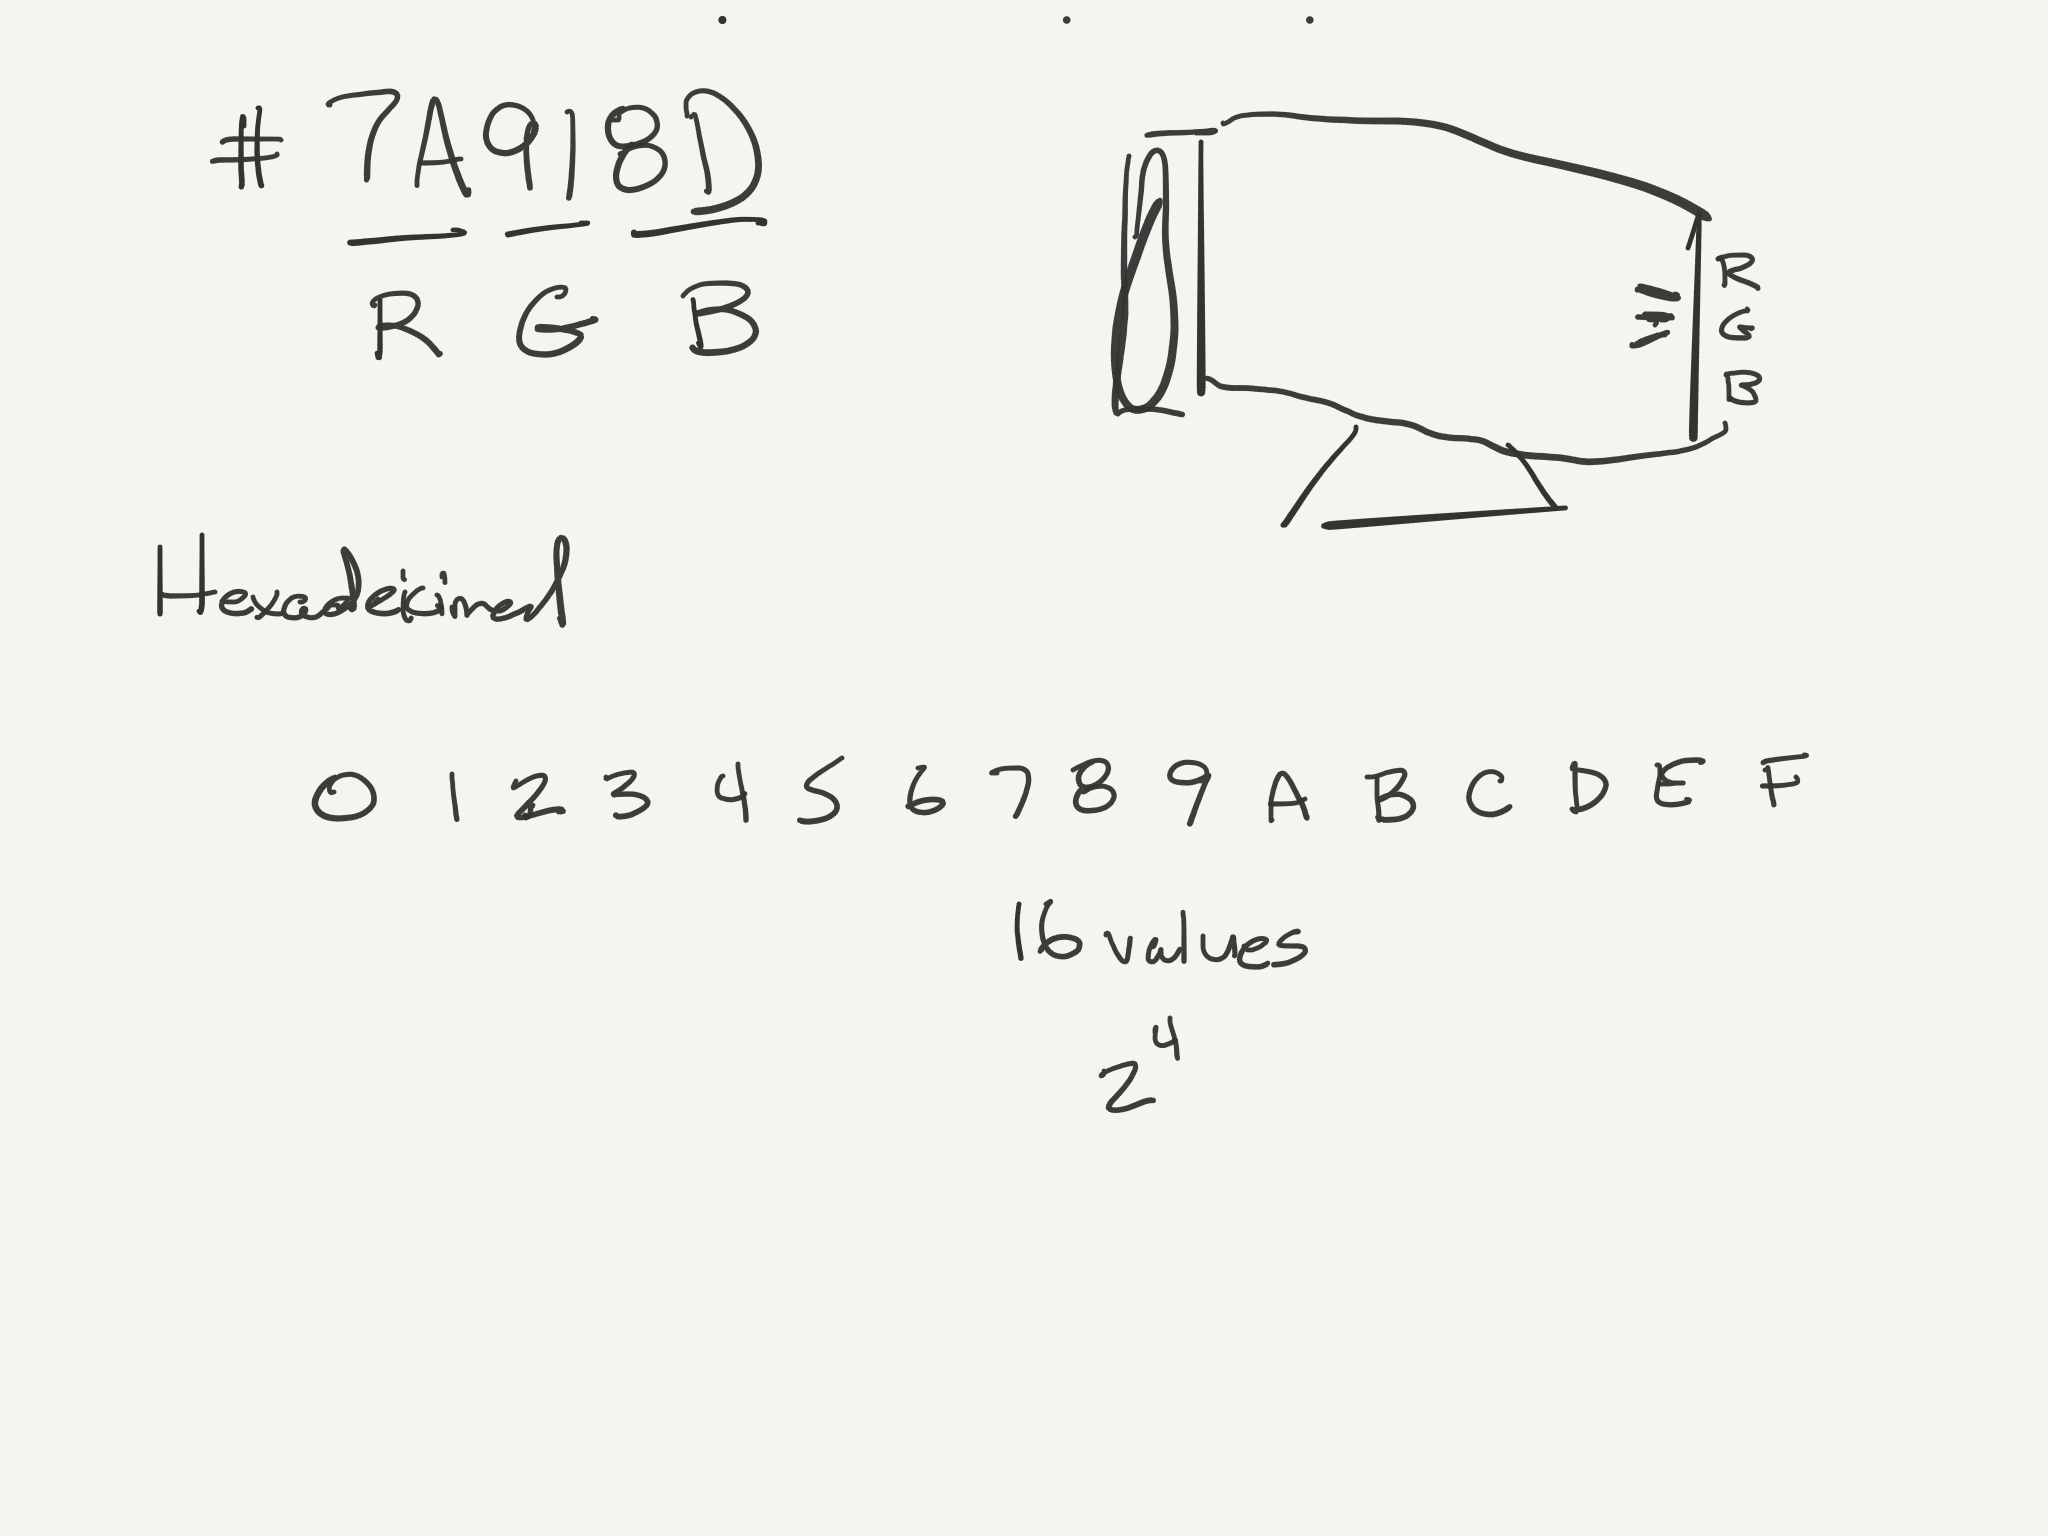 # 7A918D
R G B
R
G
B
Hexadecimal
0 1 2 3 4 5 6 7 8 9 A B C D E F
16 values
2⁴